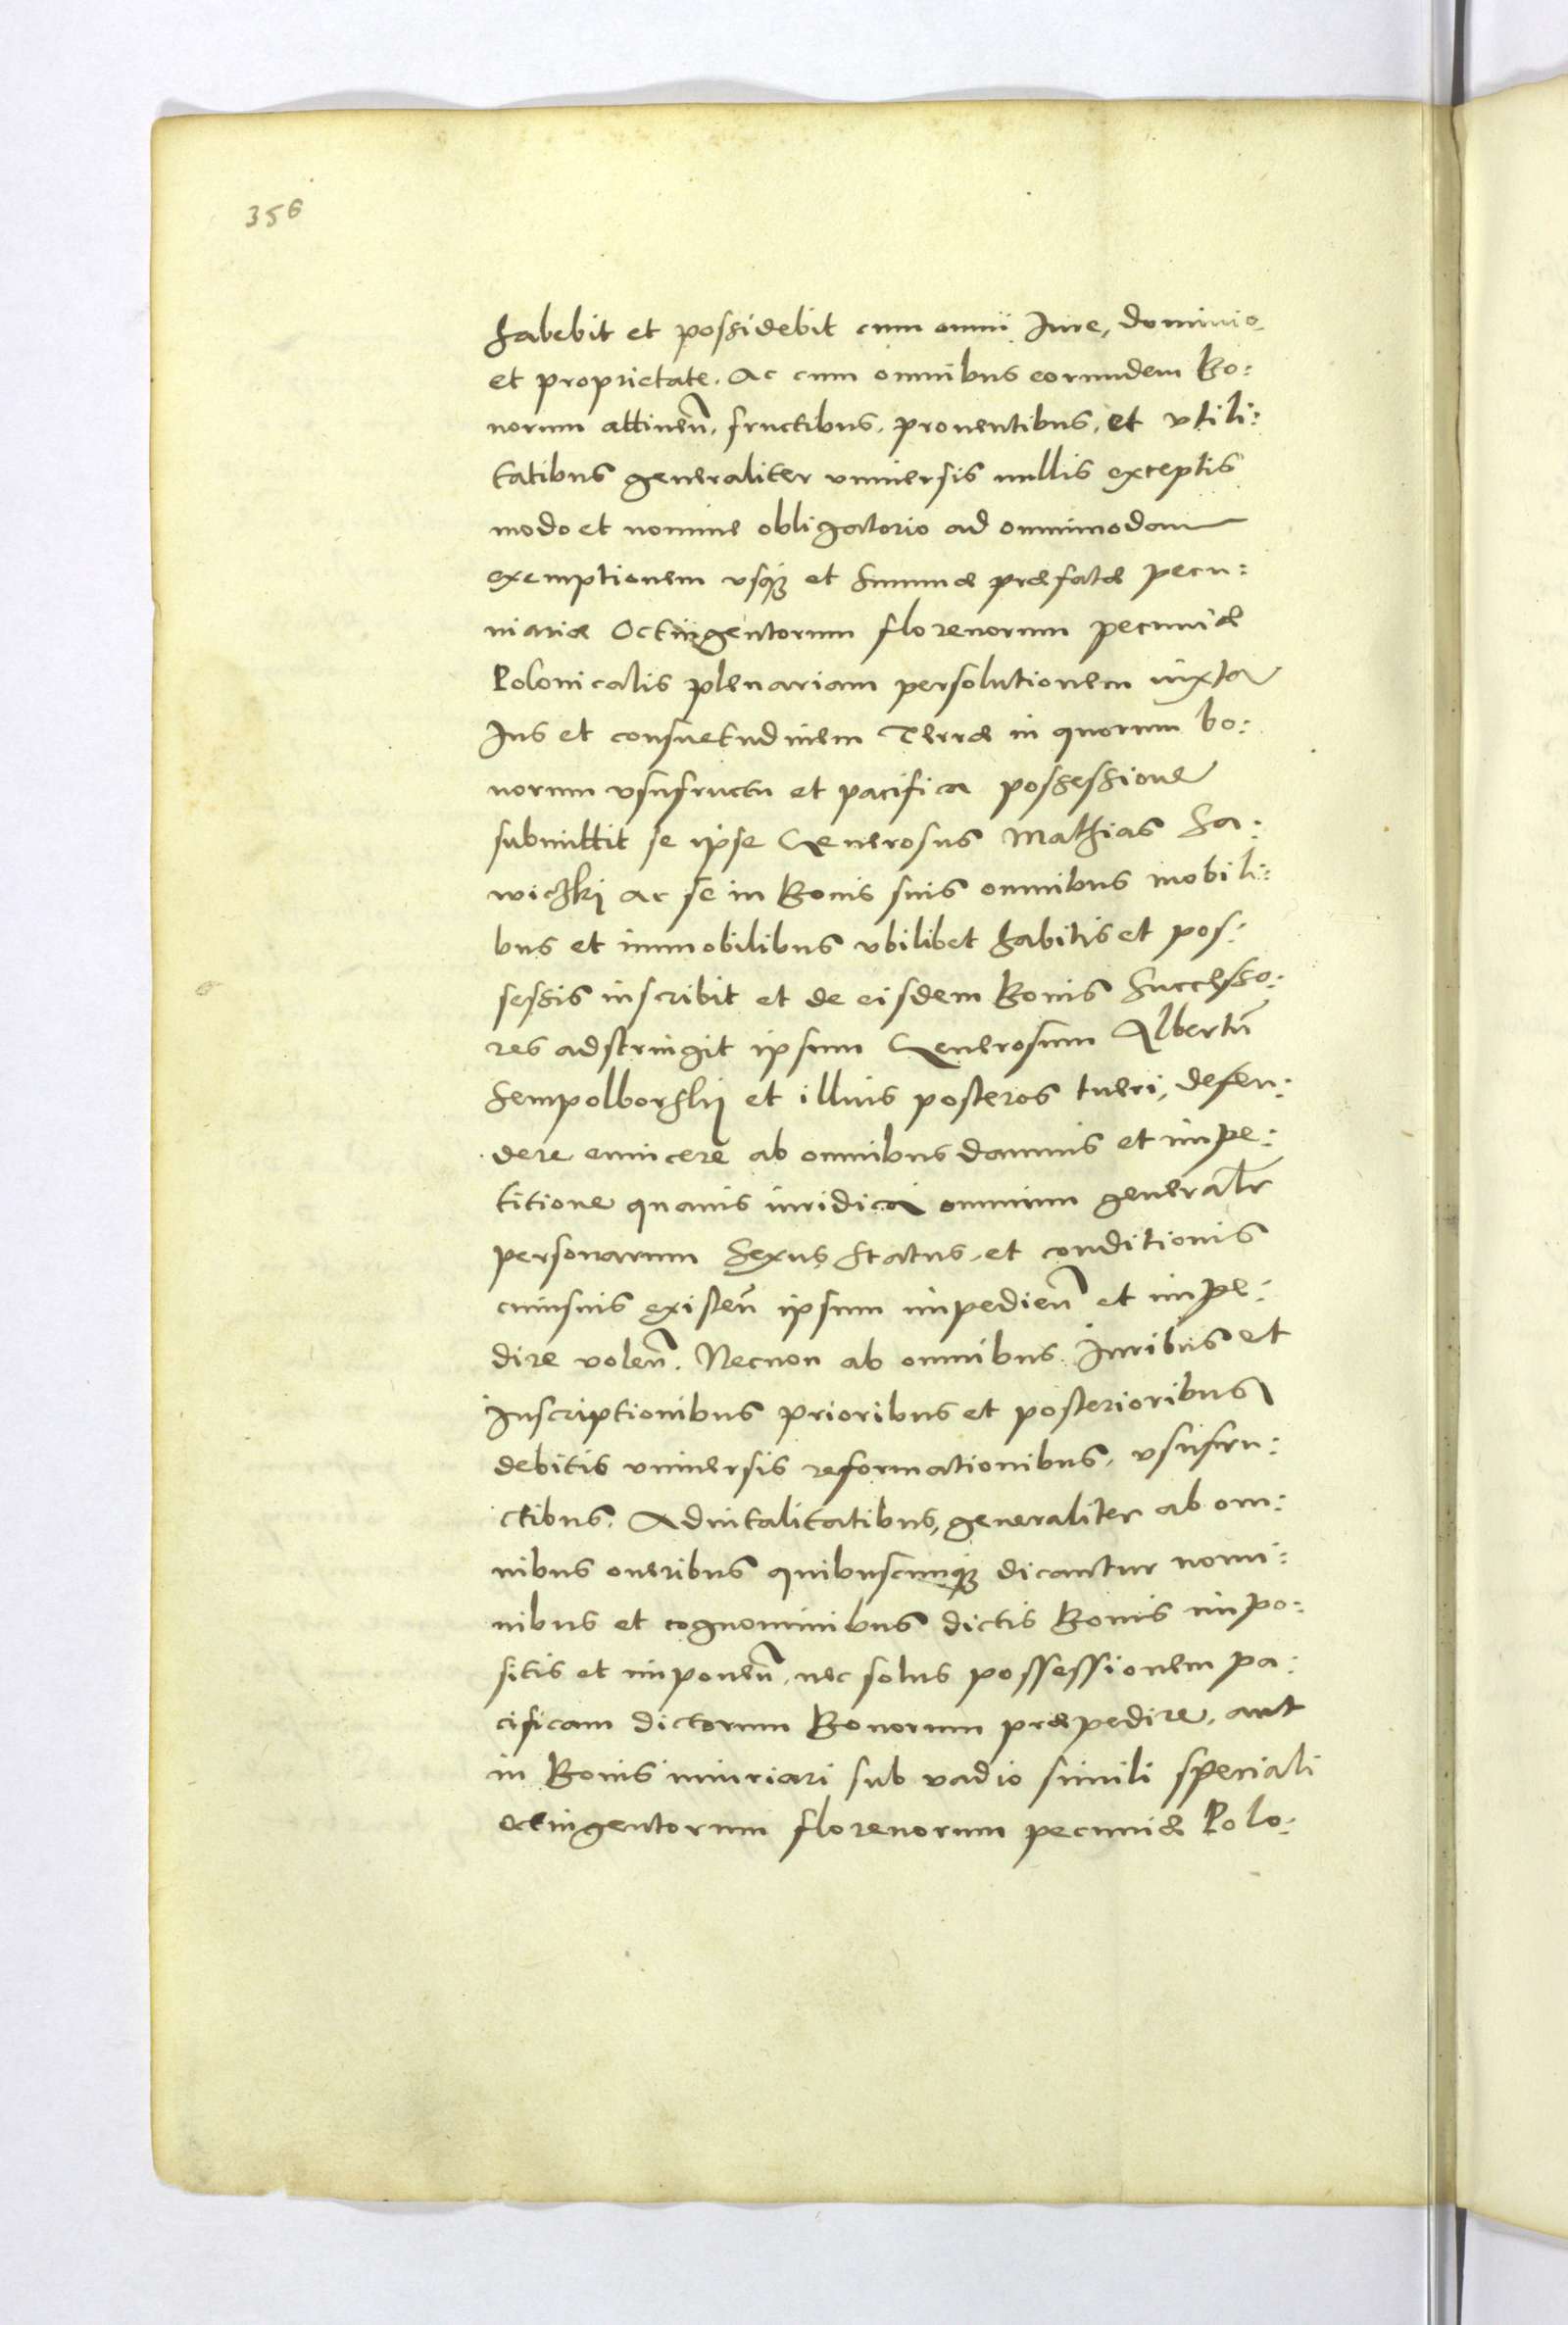 356
habebit et possidebit cum omni Iure, dominio
et proprietate. Ac cum omnibus eorumdem Bo:
norum attineñ. fructibus. prouentibus. et vtili:
tatibus generaliter vniuersis nullis exceptis
modo et nomine obligatorio ad omnimodam
exemptionem vsq3 et Summæ præfatæ pecu:
niariæ Octingentorum florenorum pecuniæ
Polonicalis plenariam persolutionem iuxta
Ius et consuetudinem Terræ in quorum bo:
norum vsufructu et pacifica possessione
submittit se ipse Generosus Mathias Sa:
wiczki ac se in Bonis suis omnibus mobili:
bus et immobilibus vbilibet habitis et pos:
sessis inscribit et de eisdem Bonis Successo:
res adstringit ipsum Generosum Albertū
Sempolborskij et illius posteros tueri, defen:
dere euincere ab omnibus damnis et impe:
titione quauis iuridica omnium generalr
personarum Sexus Status. et conditionis
cuiusuis existeñ ipsum impedieñ et impe:
dire voleñ. Necnon ab omnibus Iuribus et
Inscriptionibus prioribus et posterioribus
debitis vniuersis reformationibus, vsufru:
ctibus. Aduitalitatibus, generaliter ab om:
nibus oneribus quibuscunq3 dicantur nomi:
nibus et cognominibus dictis Bonis impo:
sitis et imponeñ, nec solus possessionem pa:
cificam dictorum Bonorum præpedire, aut
in Bonis iniuriari sub vadio simili speciali
octingentorum florenorum pecuniæ Polo: